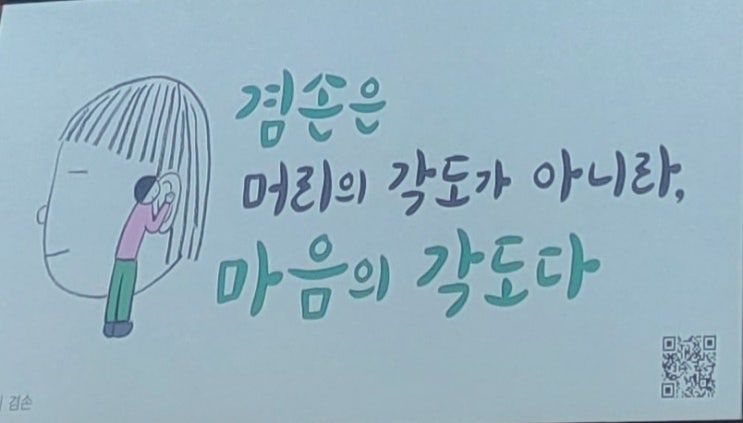 겸손은
머리의 각도가 아니라,
마음의 각도다
겸손